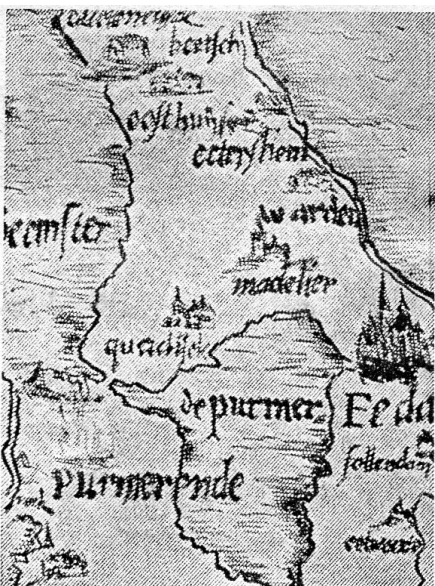 beetsch
oosthuyse
etershem
warden
beemster
madelier
quadijck
de purmer
Eeda
follendam
purmerende